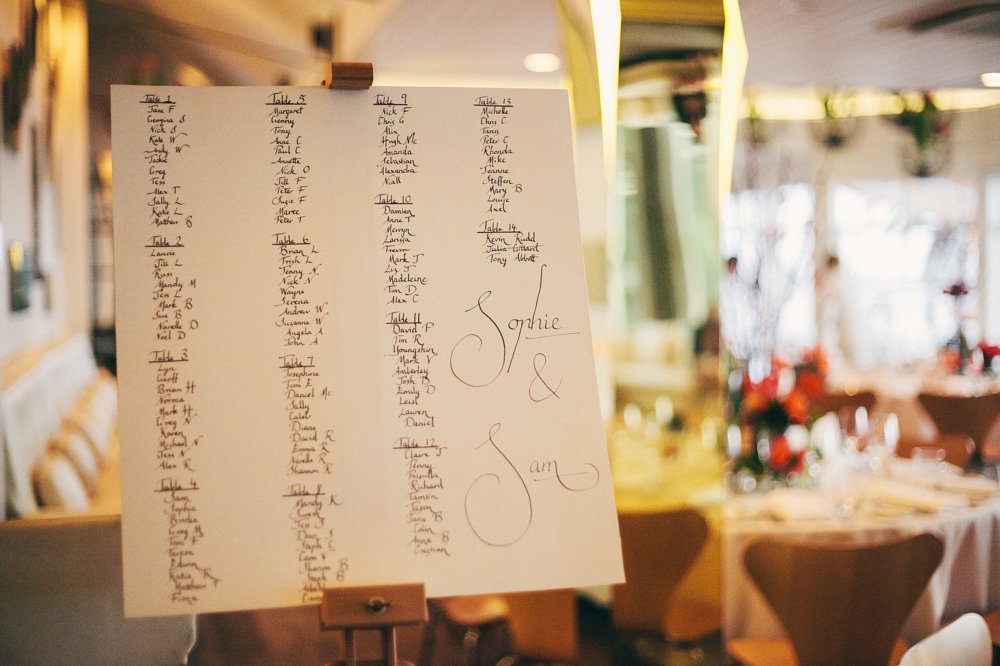 Table 1
Jane F
Georgina S
Nick S
Kate W
Andy W
Jackie
Greg
Tess
Alex T
Sally L
Katie L
Matthew B
Table 2
Laurie
Jill L
Russ
Mandy M
Jess L
Mark B
Sue B
Narelle D
Noel D
Table 3
Lyn
Geoff
Brian H
Norma
Mark H
Greg N
Karen
Michael N
Jess N
Alex R
Table 4
Sam
Sophie
Birdie
Greg M
Tom F
Teresa
Edwin
Katie R
Matthew T
Fiona
Table 5
Margaret
Genny
Tony
Anne C
Paul C
Annette
Nick O
Jill F
Peter F
Susie F
Maree
Peter T
Table 6
Brian L
Trish L
Jenny N
Nick N
Wayne
Serena
Andrew W
Suzanne W
Angela A
John A
Table 7
Josephine
Tom E
Daniel Mc
Sally
Caleb
Diane
David R
Emma R
Narelle R
Shannon R
Table 8
Mandy K
Jess J
Dan S
Steph S
Cam H
Sharon B
Steph B
Table 9
Nick F
Chris G
Alex
Hugh Mc
Amanda
Sebastian
Alexandra
Niall
Table 10
Damien
Anne T
Merryn
Larissa
Trevor
Mark J
Liz J
Madeleine
Tim D
Alex C
Table 11
David P
Tim R
Youngshin
Mark V
Amberley
Josh D
Emily D
Leish
Lauren
Daniel
Table 12
Claire J
Penny
Priscilla
Richard
Tamsin
Jason
Jane B
Colin
Anna B
Cristian
Table 13
Michelle
Chris C
Tanis
Peter C
Rhonda
Mike
Joanne
Steffen
Mary B
Louise
Axel
Table 14
Kevin Rudd
Julia Gillard
Tony Abbott
Sophie
&
Sam